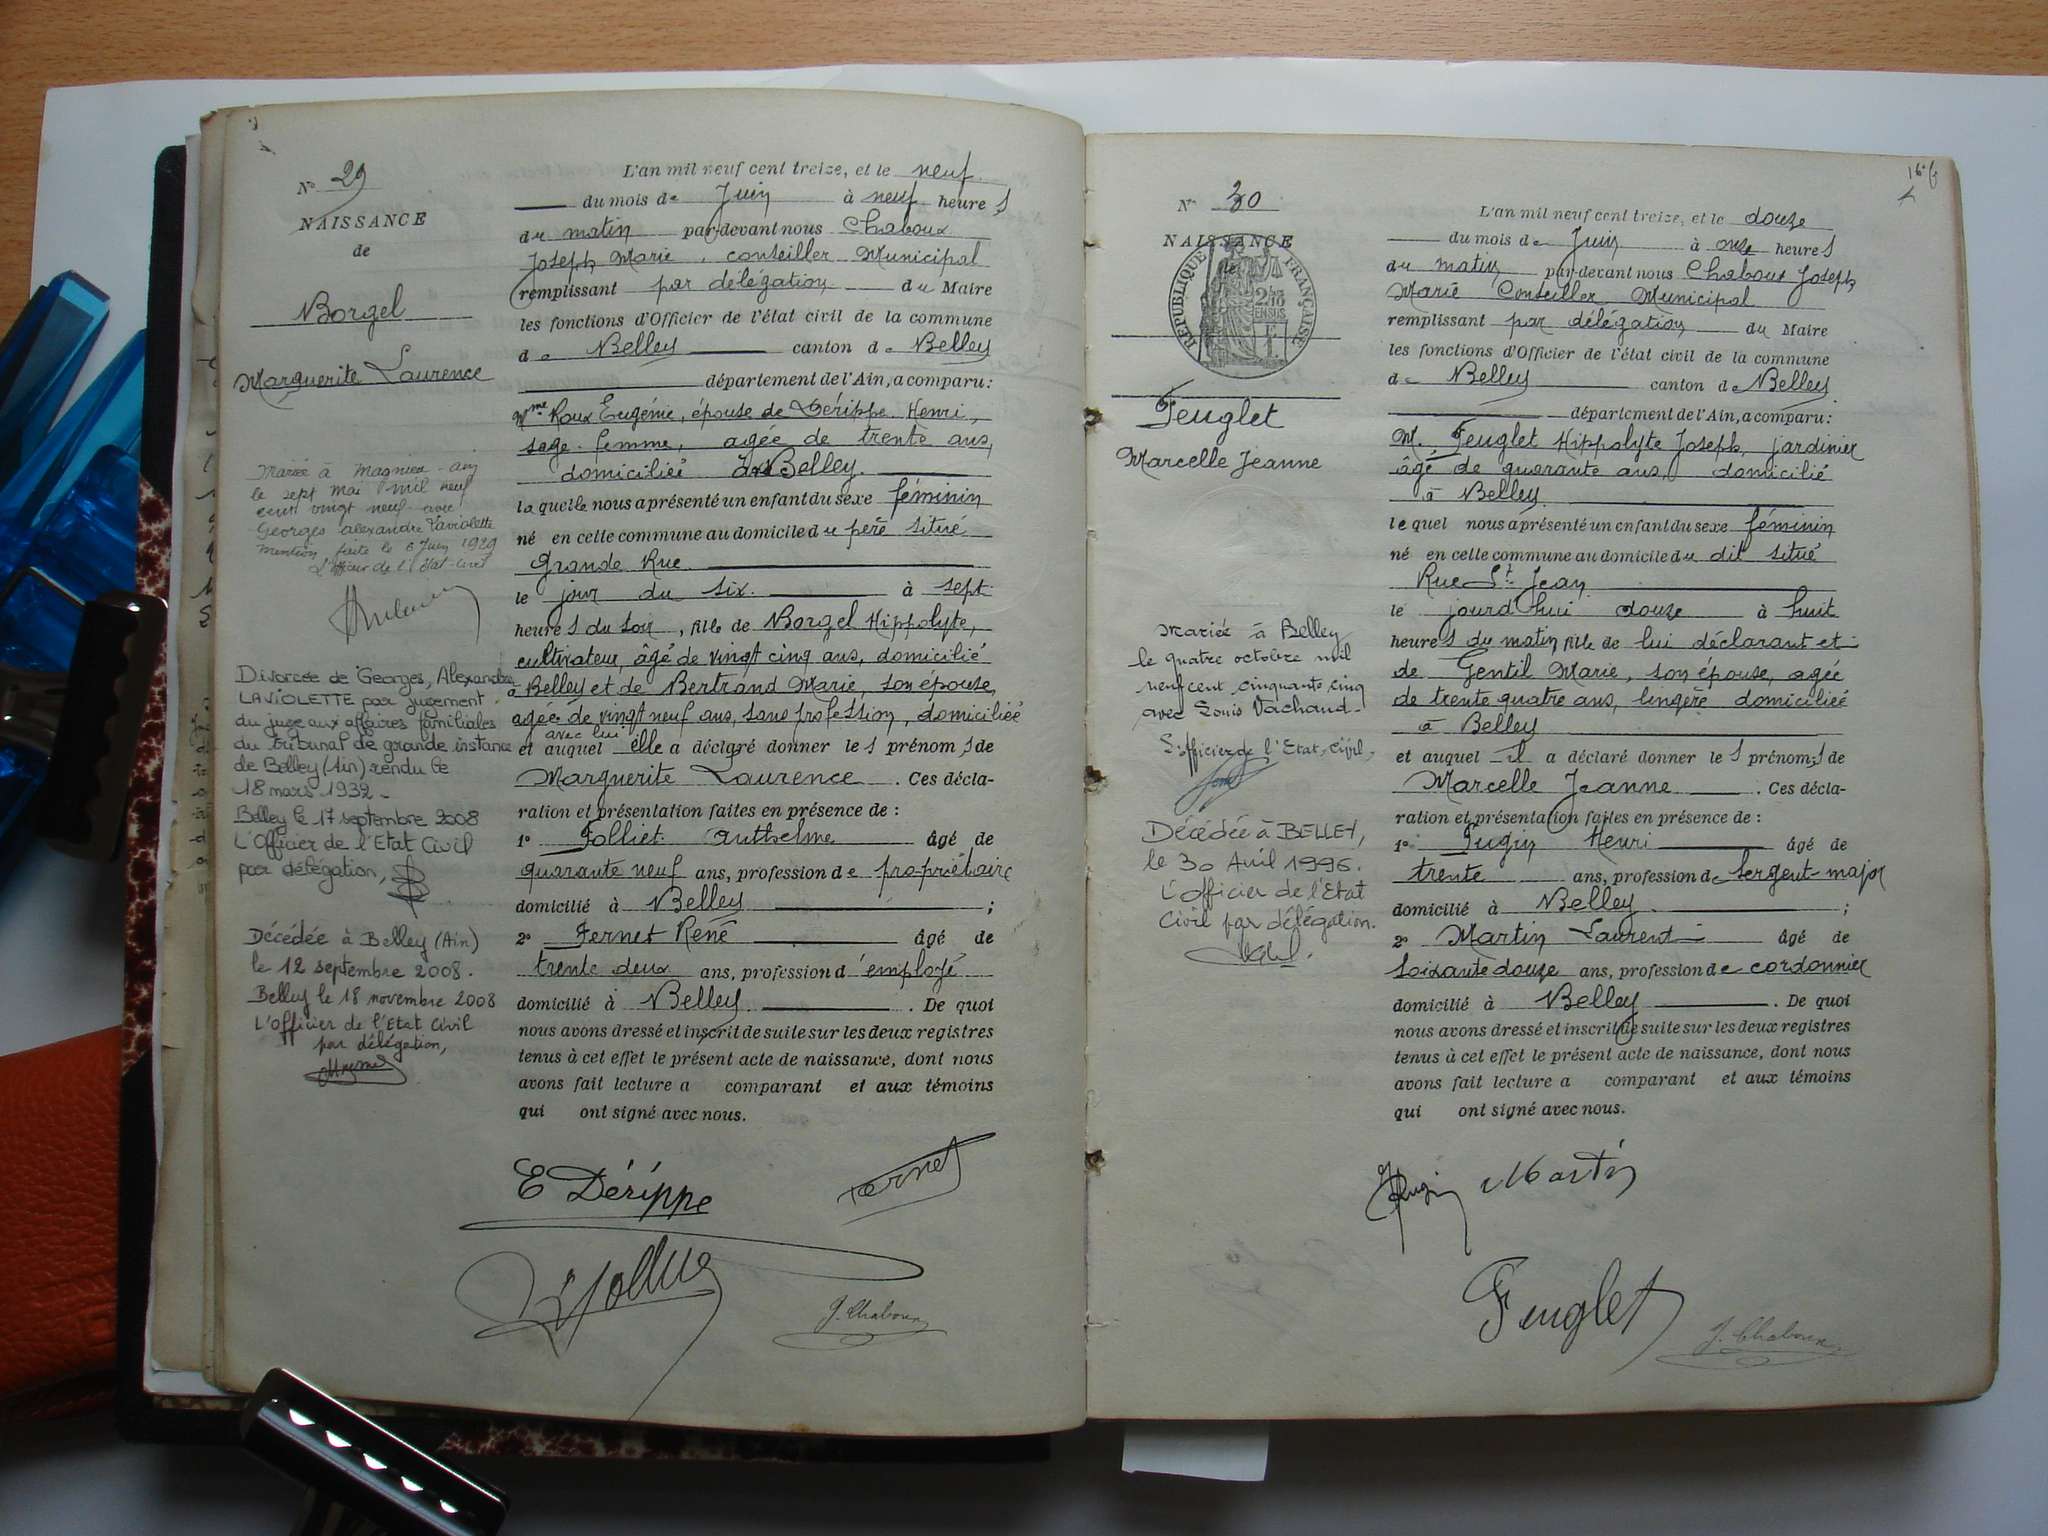 N° 29
NAISSANCE
de
Borgel
Marguerite Laurence
Mariée à Magnieu-ain
le sept mai mil neuf
cent vingt neuf avec
Georges alexandre Laviolette
Mention faite le 6 Juin 1929
L'officier de l'état-civil
Divorcée de Georges, Alexandre
LAVIOLETTE par jugement
du juge aux affaires familiales
du tribunal de grande instance
de Belley (Ain) rendu le
18 mars 1932.
Belley le 17 septembre 2008
L'Officier de l'Etat Civil
par délégation,
Décédée à Belley (Ain)
le 12 septembre 2008.
Belley le 18 novembre 2008
L'Officier de l'Etat Civil
par délégation,
L'an mil neuf cent treize, et le neuf
du mois de Juin à neuf heures
du matin par-devant nous Chaboux
Joseph Marie, conseiller Municipal
remplissant par délégation du Maire
les fonctions d'Officier de l'état civil de la commune
de Belley canton de Belley
département de l'Ain, a comparu :
Mme Roux Eugénie, épouse de Dérippe Henri,
sage-femme, agée de trente ans,
domiciliée à Belley.
laquelle nous a présenté un enfant du sexe féminin
né en celle commune au domicile du père situé
Grande Rue
le jour du six à sept
heures du soir, fille de Borgel Hippolyte,
cultivateur, âgé de vingt cinq ans, domicilié
à Belley et de Bertrand Marie, son épouse,
agée de vingt neuf ans, sans profession, domiciliée
avec lui
et auquel elle a déclaré donner les prénoms de
Marguerite Laurence. Ces décla-
ration et présentation faites en présence de :
1° Folliet Anthelme âgé de
quarante neuf ans, profession de propriétaire
domicilié à Belley ;
2° Fernet René âgé de
trente deux ans, profession d'employé
domicilié à Belley. De quoi
nous avons dressé et inscrit de suite sur les deux registres
tenus à cet effet le présent acte de naissance, dont nous
avons fait lecture a comparant et aux témoins
qui ont signé avec nous.
E Dérippe
Fernet
J. Chaboux
16
N° 30
NAISSANCE
de
RÉPUBLIQUE FRANÇAISE
2/10
EN SUS
Feuglet
Marcelle Jeanne
Mariée à Belley
le quatre octobre mil
neuf cent cinquante cinq
avec Louis Vachaud.
L'officier de l'Etat-civil,
Décédée à BELLEY,
le 30 Avril 1996.
L'Officier de l'Etat
Civil par délégation.
L'an mil neuf cent treize, et le douze
du mois de Juin à onze heures
du matin par-devant nous Chaboux Joseph
Marie Conseiller Municipal
remplissant par délégation du Maire
les fonctions d'Officier de l'état civil de la commune
de Belley canton de Belley
département de l'Ain, a comparu :
M. Feuglet Hippolyte Joseph, jardinier
âgé de quarante ans, domicilié
à Belley
lequel nous a présenté un enfant du sexe féminin
né en celle commune au domicile du dit situé
Rue St Jean
le jourd'hui douze à huit
heures du matin fille de lui déclarant et
de Gentil Marie, son épouse, agée
de trente quatre ans, lingère domiciliée
à Belley
et auquel il a déclaré donner les prénoms de
Marcelle Jeanne. Ces décla-
ration et présentation faites en présence de :
1° Fugin Henri âgé de
trente ans, profession de Sergent-major
domicilié à Belley ;
2° Martin Laurent âgé de
Soixante douze ans, profession de cordonnier
domicilié à Belley. De quoi
nous avons dressé et inscrit de suite sur les deux registres
tenus à cet effet le présent acte de naissance, dont nous
avons fait lecture a comparant et aux témoins
qui ont signé avec nous.
Martin
Feuglet
J. Chaboux